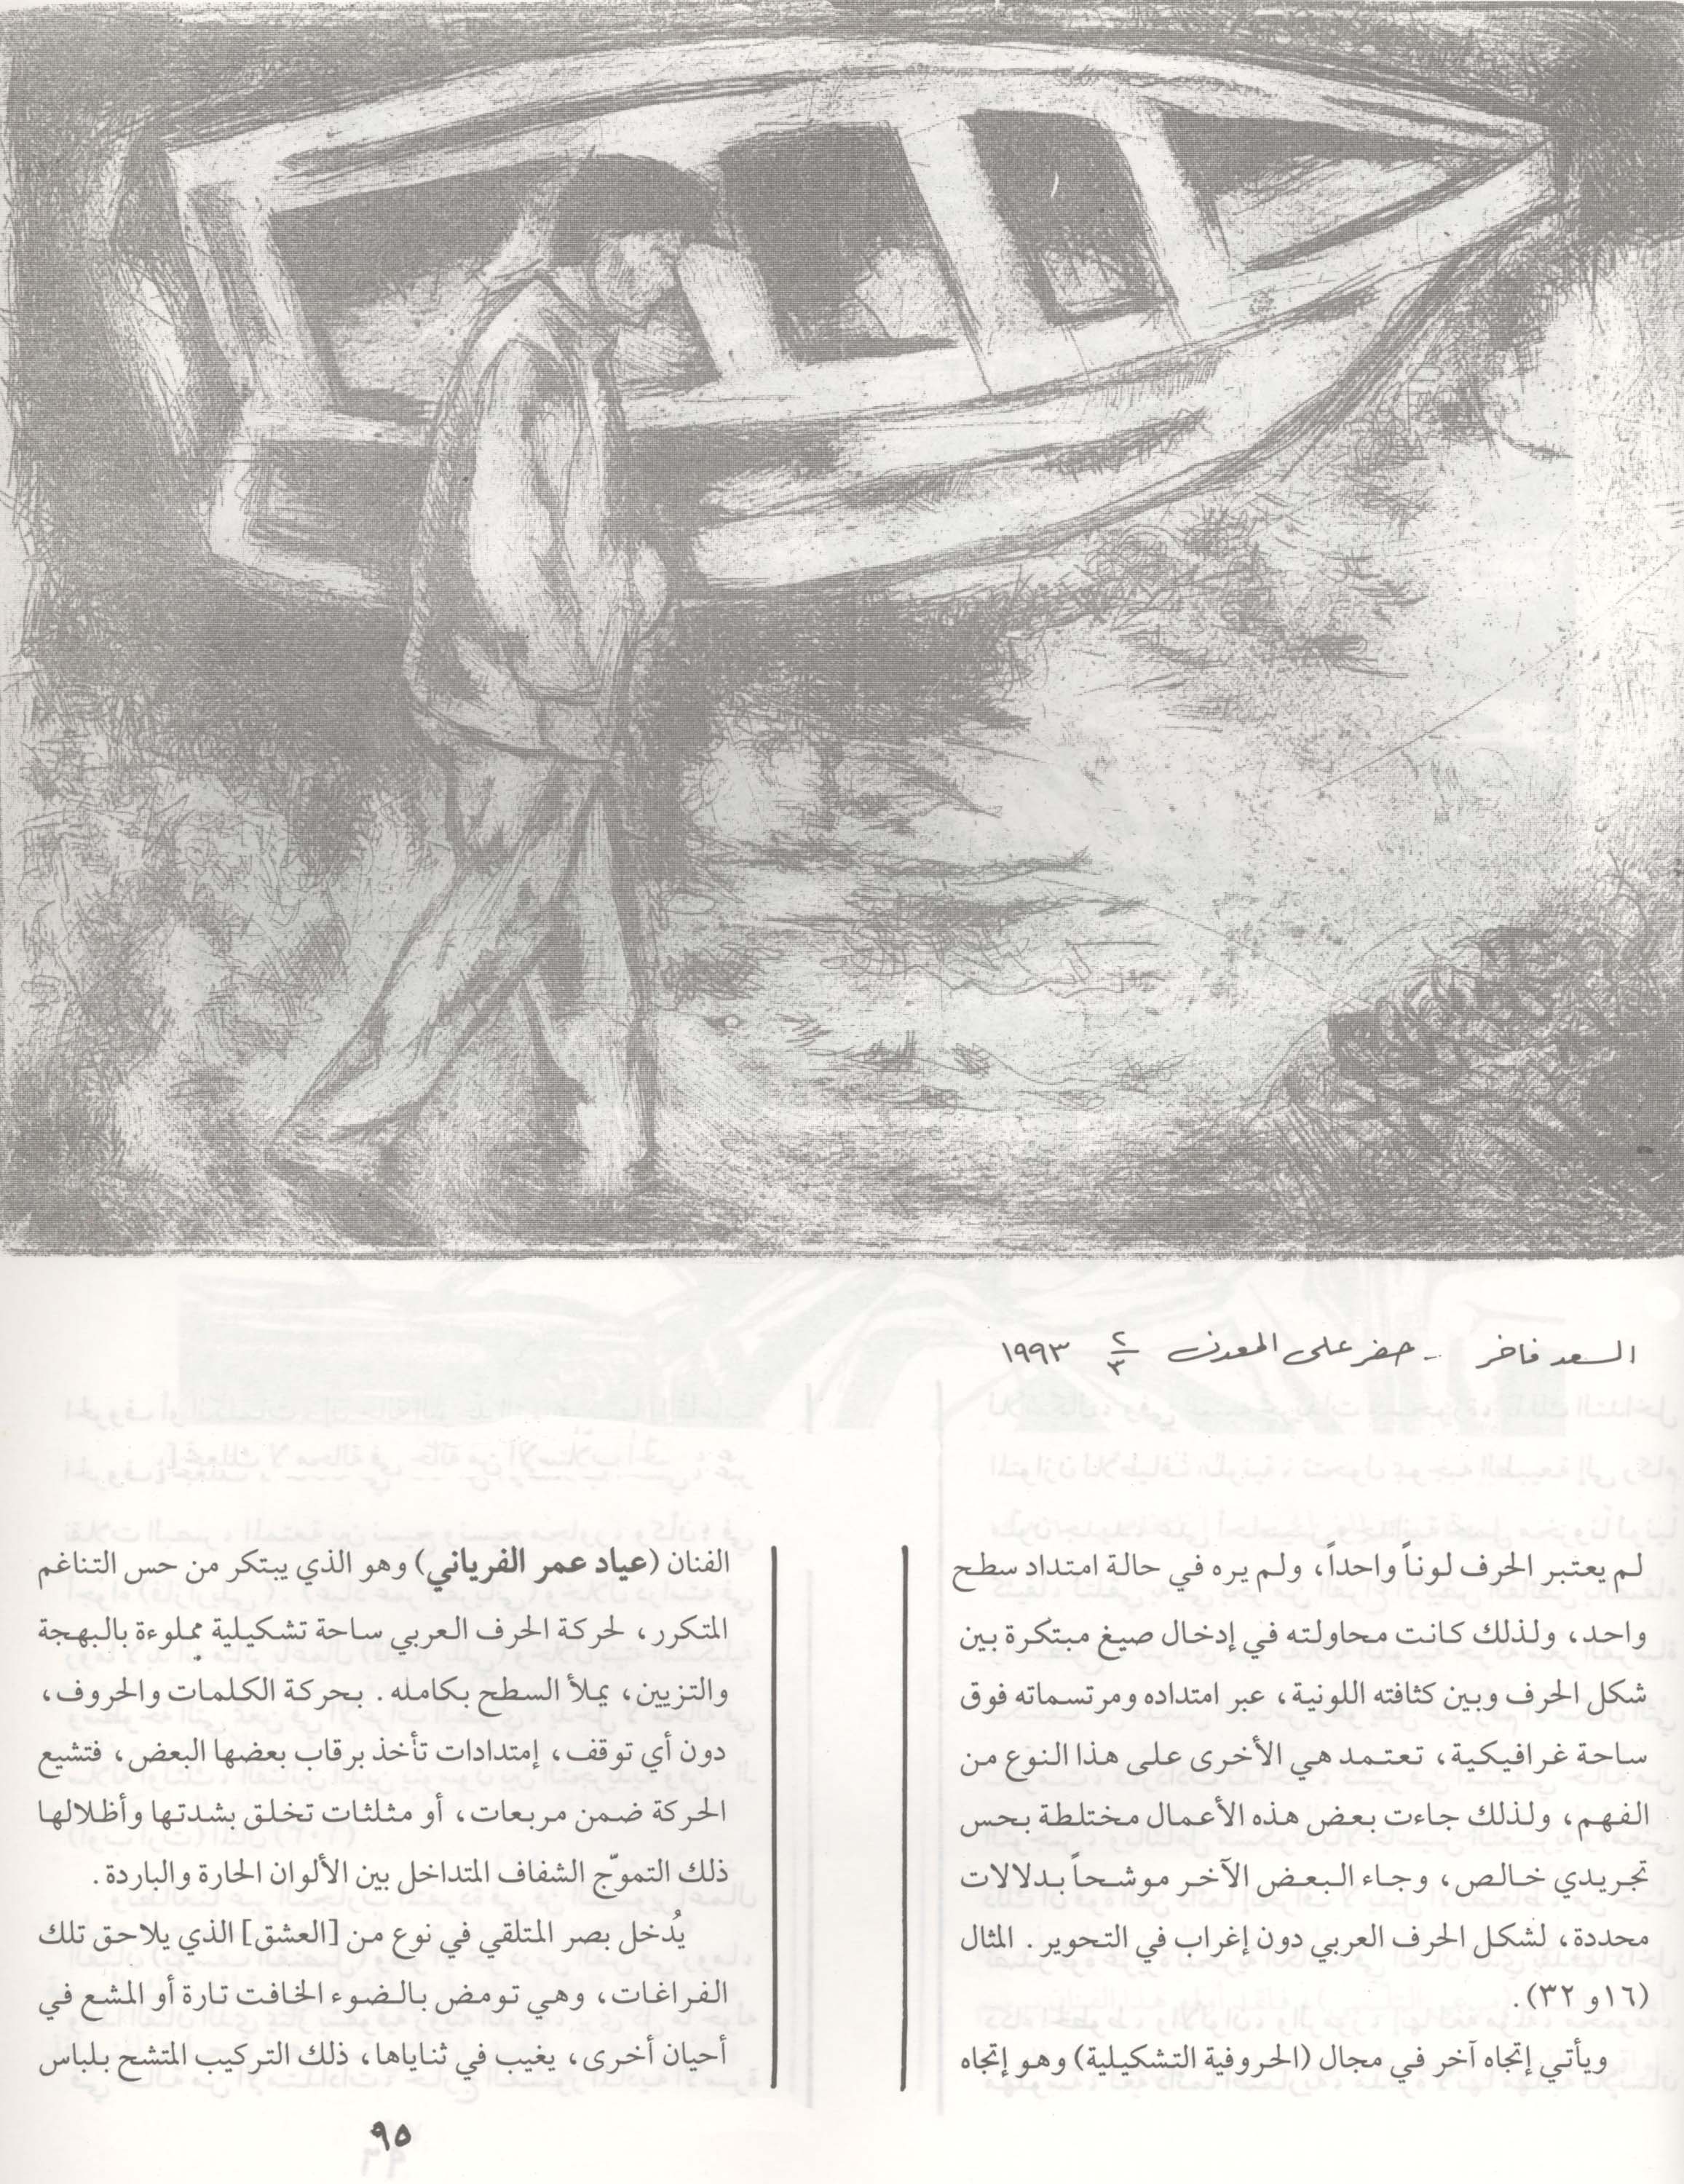 السعد فاخر - حفر على المعدن ٢/٣ ١٩٩٣
لم يعتبر الحرف لوناً واحداً، ولم يره في حالة امتداد سطح
واحد، ولذلك كانت محاولته في إدخال صيغ مبتكرة بين
شكل الحرف وبين كثافته اللونية، عبر امتداده ومرتسماته فوق
ساحة غرافيكية، تعتمد هي الأخرى على هذا النوع من
الفهم، ولذلك جاءت بعض هذه الأعمال مختلطة بحس
تجريدي خالص، وجاء البعض الآخر موشحاً بدلالات
محددة، لشكل الحرف العربي دون إغراب في التحوير. المثال
(١٦و ٣٢).
ويأتي إتجاه آخر في مجال (الحروفية التشكيلية) وهو إتجاه
الفنان (عياد عمر الفرياني) وهو الذي يبتكر من حس التناغم
المتكرر، لحركة الحرف العربي ساحة تشكيلية مملوءة بالبهجة
والتزيين، يملأ السطح بكامله. بحركة الكلمات والحروف،
دون أي توقف، إمتدادات تأخذ برقاب بعضها البعض، فتشيع
الحركة ضمن مربعات، أو مثلثات تخلق بشدتها وأظلالها
ذلك التموّج الشفاف المتداخل بين الألوان الحارة والباردة.
يُدخل بصر المتلقي في نوع من [العشق] الذي يلاحق تلك
الفراغات، وهي تومض بالضوء الخافت تارة أو المشع في
أحيان أخرى، يغيب في ثناياها، ذلك التركيب المتشح بلباس
٩٥